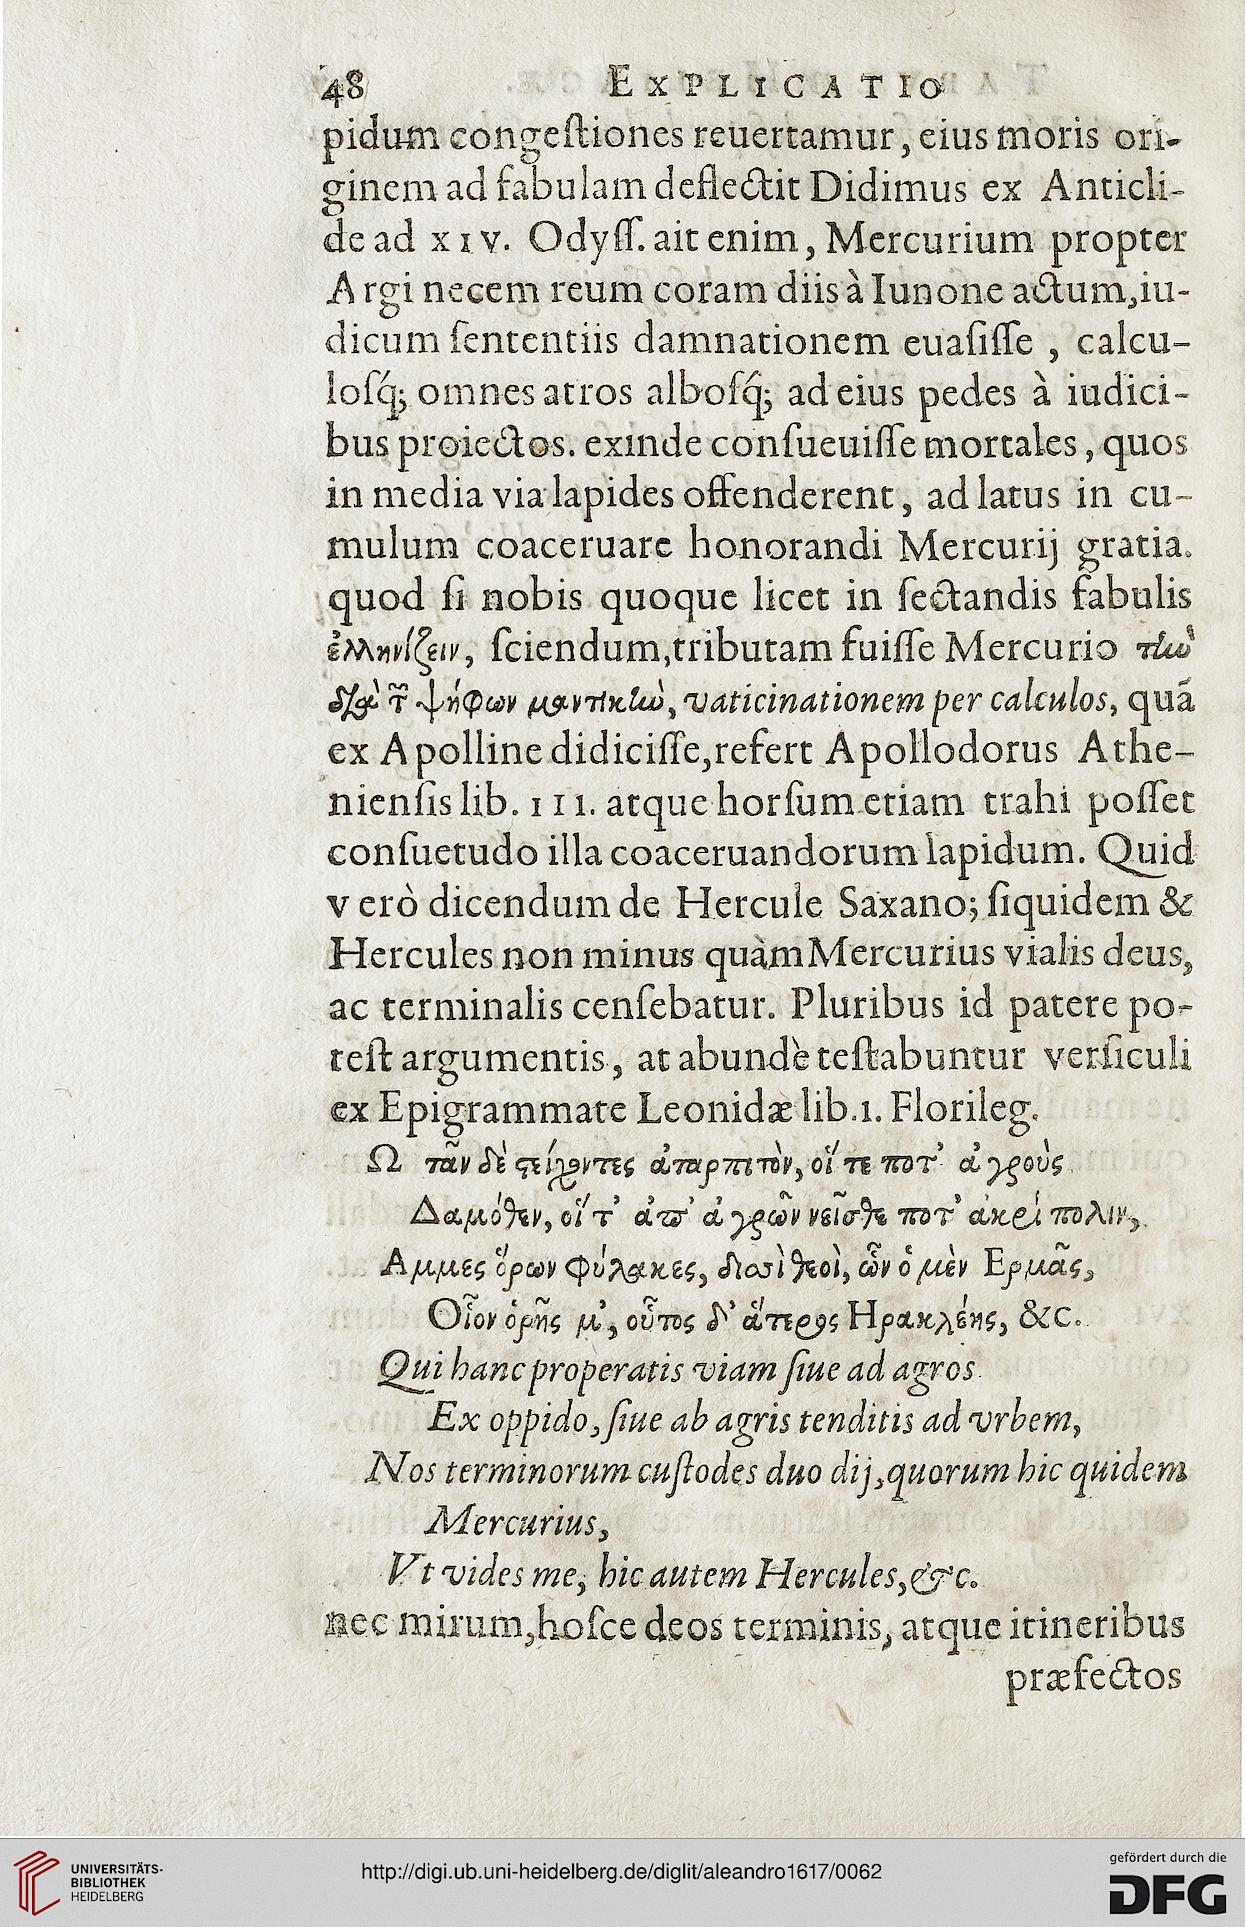 48 EXPLICATIO
pidum congeſtiones reuertamur, eius moris ori-
ginem ad fabulam deflectit Didimus ex Anticli-
de ad XIV. Odyſſ. ait enim, Mercurium propter
Argi necem reum coram diis à Iunone actum, iu-
dicum ſententiis damnationem euaſiſſe, calcu-
loſq́; omnes atros alboſq́; ad eius pedes à iudici-
bus proiectos. exinde conſueuiſſe mortales, quos
in media via lapides offenderent, ad latus in cu-
mulum coaceruare honorandi Mercurij gratia.
quod ſi nobis quoque licet in ſectandis fabulis
ἑλληνίζειν, ſciendum, tributam fuiſſe Mercurio τὴν
διὰ τ῀ ψήφων μαντικὴν, vaticinationem per calculos, quã
ex Apolline didiciſſe, refert Apollodorus Athe-
nienſis lib. III. atque horſum etiam trahi poſſet
conſuetudo illa coaceruandorum lapidum. Quid
verò dicendum de Hercule Saxano; ſiquidem &
Hercules non minus quàm Mercurius vialis deus,
ac terminalis cenſebatur. Pluribus id patere po-
teſt argumentis, at abundè teſtabuntur verſiculi
ex Epigrammate Leonidæ lib. 1. Florileg.
Ω τᾶν δὲ ςείχοντες ἀταρπιτὸν, οἵ τε ποτ’ ἀγροὺς
Δαμόθεν, οἵ τ’ ἀπ’ ἀγρῶν νεῖσθε ποτ’ ἀκρί πολιν,
Αμμες ὅρων φύλακες, δισσὶ θεοὶ, ὧν ὁ μὲν Ερμᾶς,
Οἷον ὁρῆς μ’, οὗτος δ’ ἅτερος Ηρακλέης, &c.
Qui hanc properatis viam ſiue ad agros
Ex oppido, ſiue ab agris tenditis ad vrbem,
Nos terminorum cuſtodes duo dij, quorum hic quidem
Mercurius,
Vt vides me, hic autem Hercules, &c.
nec mirum, hoſce deos terminis, atque itineribus
præfectos
UNIVERSITÄTS-
BIBLIOTHEK
HEIDELBERG
http://digi.ub.uni-heidelberg.de/diglit/aleandro1617/0062
gefördert durch die
DFG